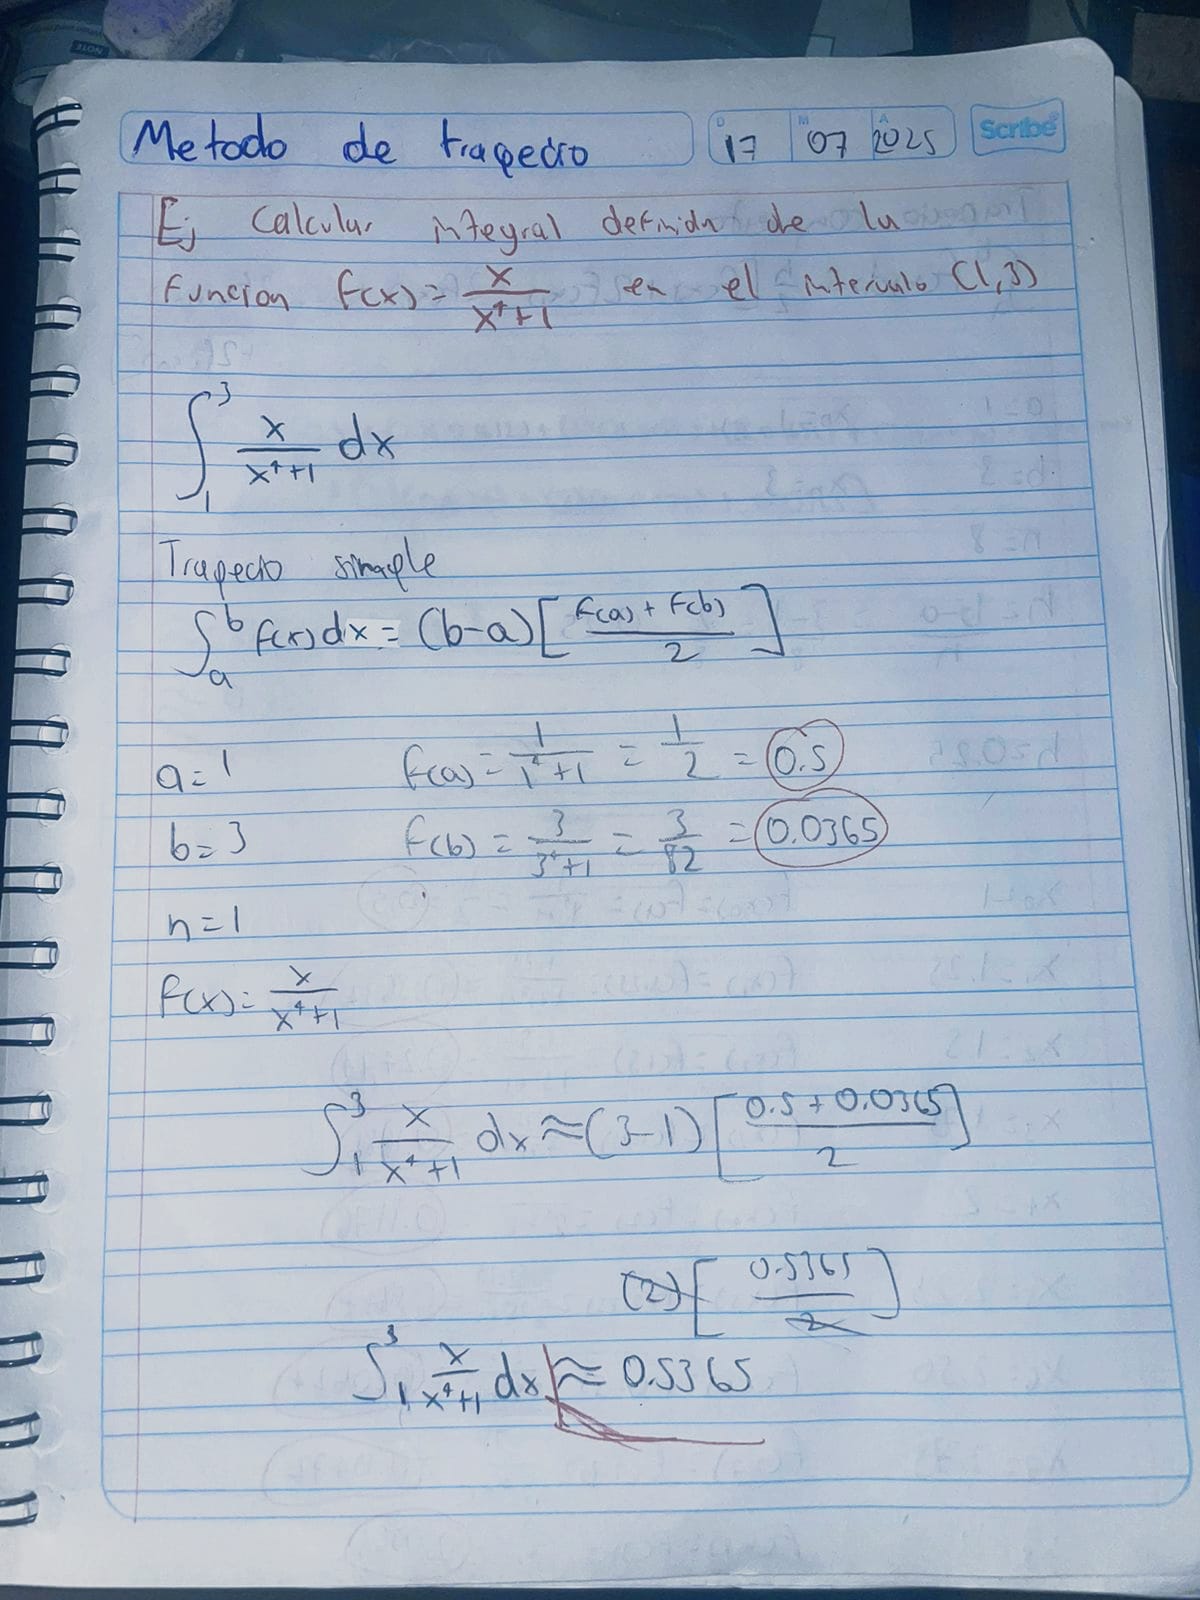 Metodo de trapecio
D 17 M 07 A 2025
Scribe
Ej Calcular integral definida de la
funcion f(x)= x/(x⁴+1) en el intervalo (1,3)
∫₁³ x/(x⁴+1) dx
Trapecio simple
∫ₐᵇ f(x)dx = (b-a)[(f(a)+f(b))/2]
a=1 f(a)= 1/(1⁴+1) = 1/2 = 0.5
b=3 f(b)= 3/(3⁴+1) = 3/82 = 0.0365
n=1
f(x)= x/(x⁴+1)
∫₁³ x/(x⁴+1) dx ≈ (3-1)[(0.5+0.0365)/2]
(2)[0.5365/2]
∫₁³ x/(x⁴+1) dx ≈ 0.5365